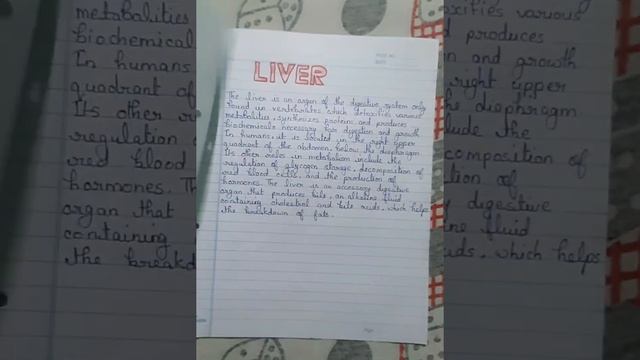 LIVER
The liver is an organ of the digestive system only
found in vertebrates which detoxifies various
metabalities, synthesizes proteins and produces
biochemicals necessary for digestion and growth
In humans, it is located in the right upper
quadrant of the abdomen, below the diaphragm
Its other roles in metabolism include the
regulation of glycogen storage, decomposition of
red blood cells, and the production of
hormones. The liver is an accessory digestive
organ that produces bile, an alkaline fluid
containing cholestrol and bile acids, which helps
the breakdown of fats.